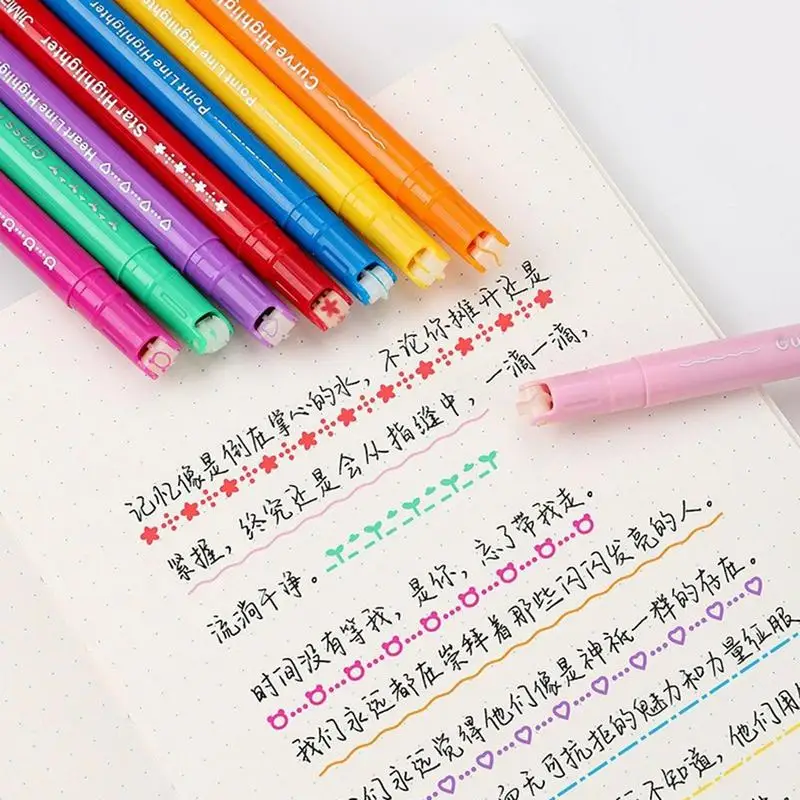 Curve Highlight
Point Line Highlight
Point Line Highlighter
Star Highlighter
Heart Line Highlighter
Grass
记忆像是倒在掌心的水，不论你摊开还是
紧握，终究还是会从指缝中，一滴一滴，
流淌干净。
时间没有等我，是你，忘了带我走。
我们永远都在崇拜着那些闪闪发亮的人。
们永远觉得他们像是神祗一样的存在。
而无可抗拒的魅力和力量征服
不知道，他们用